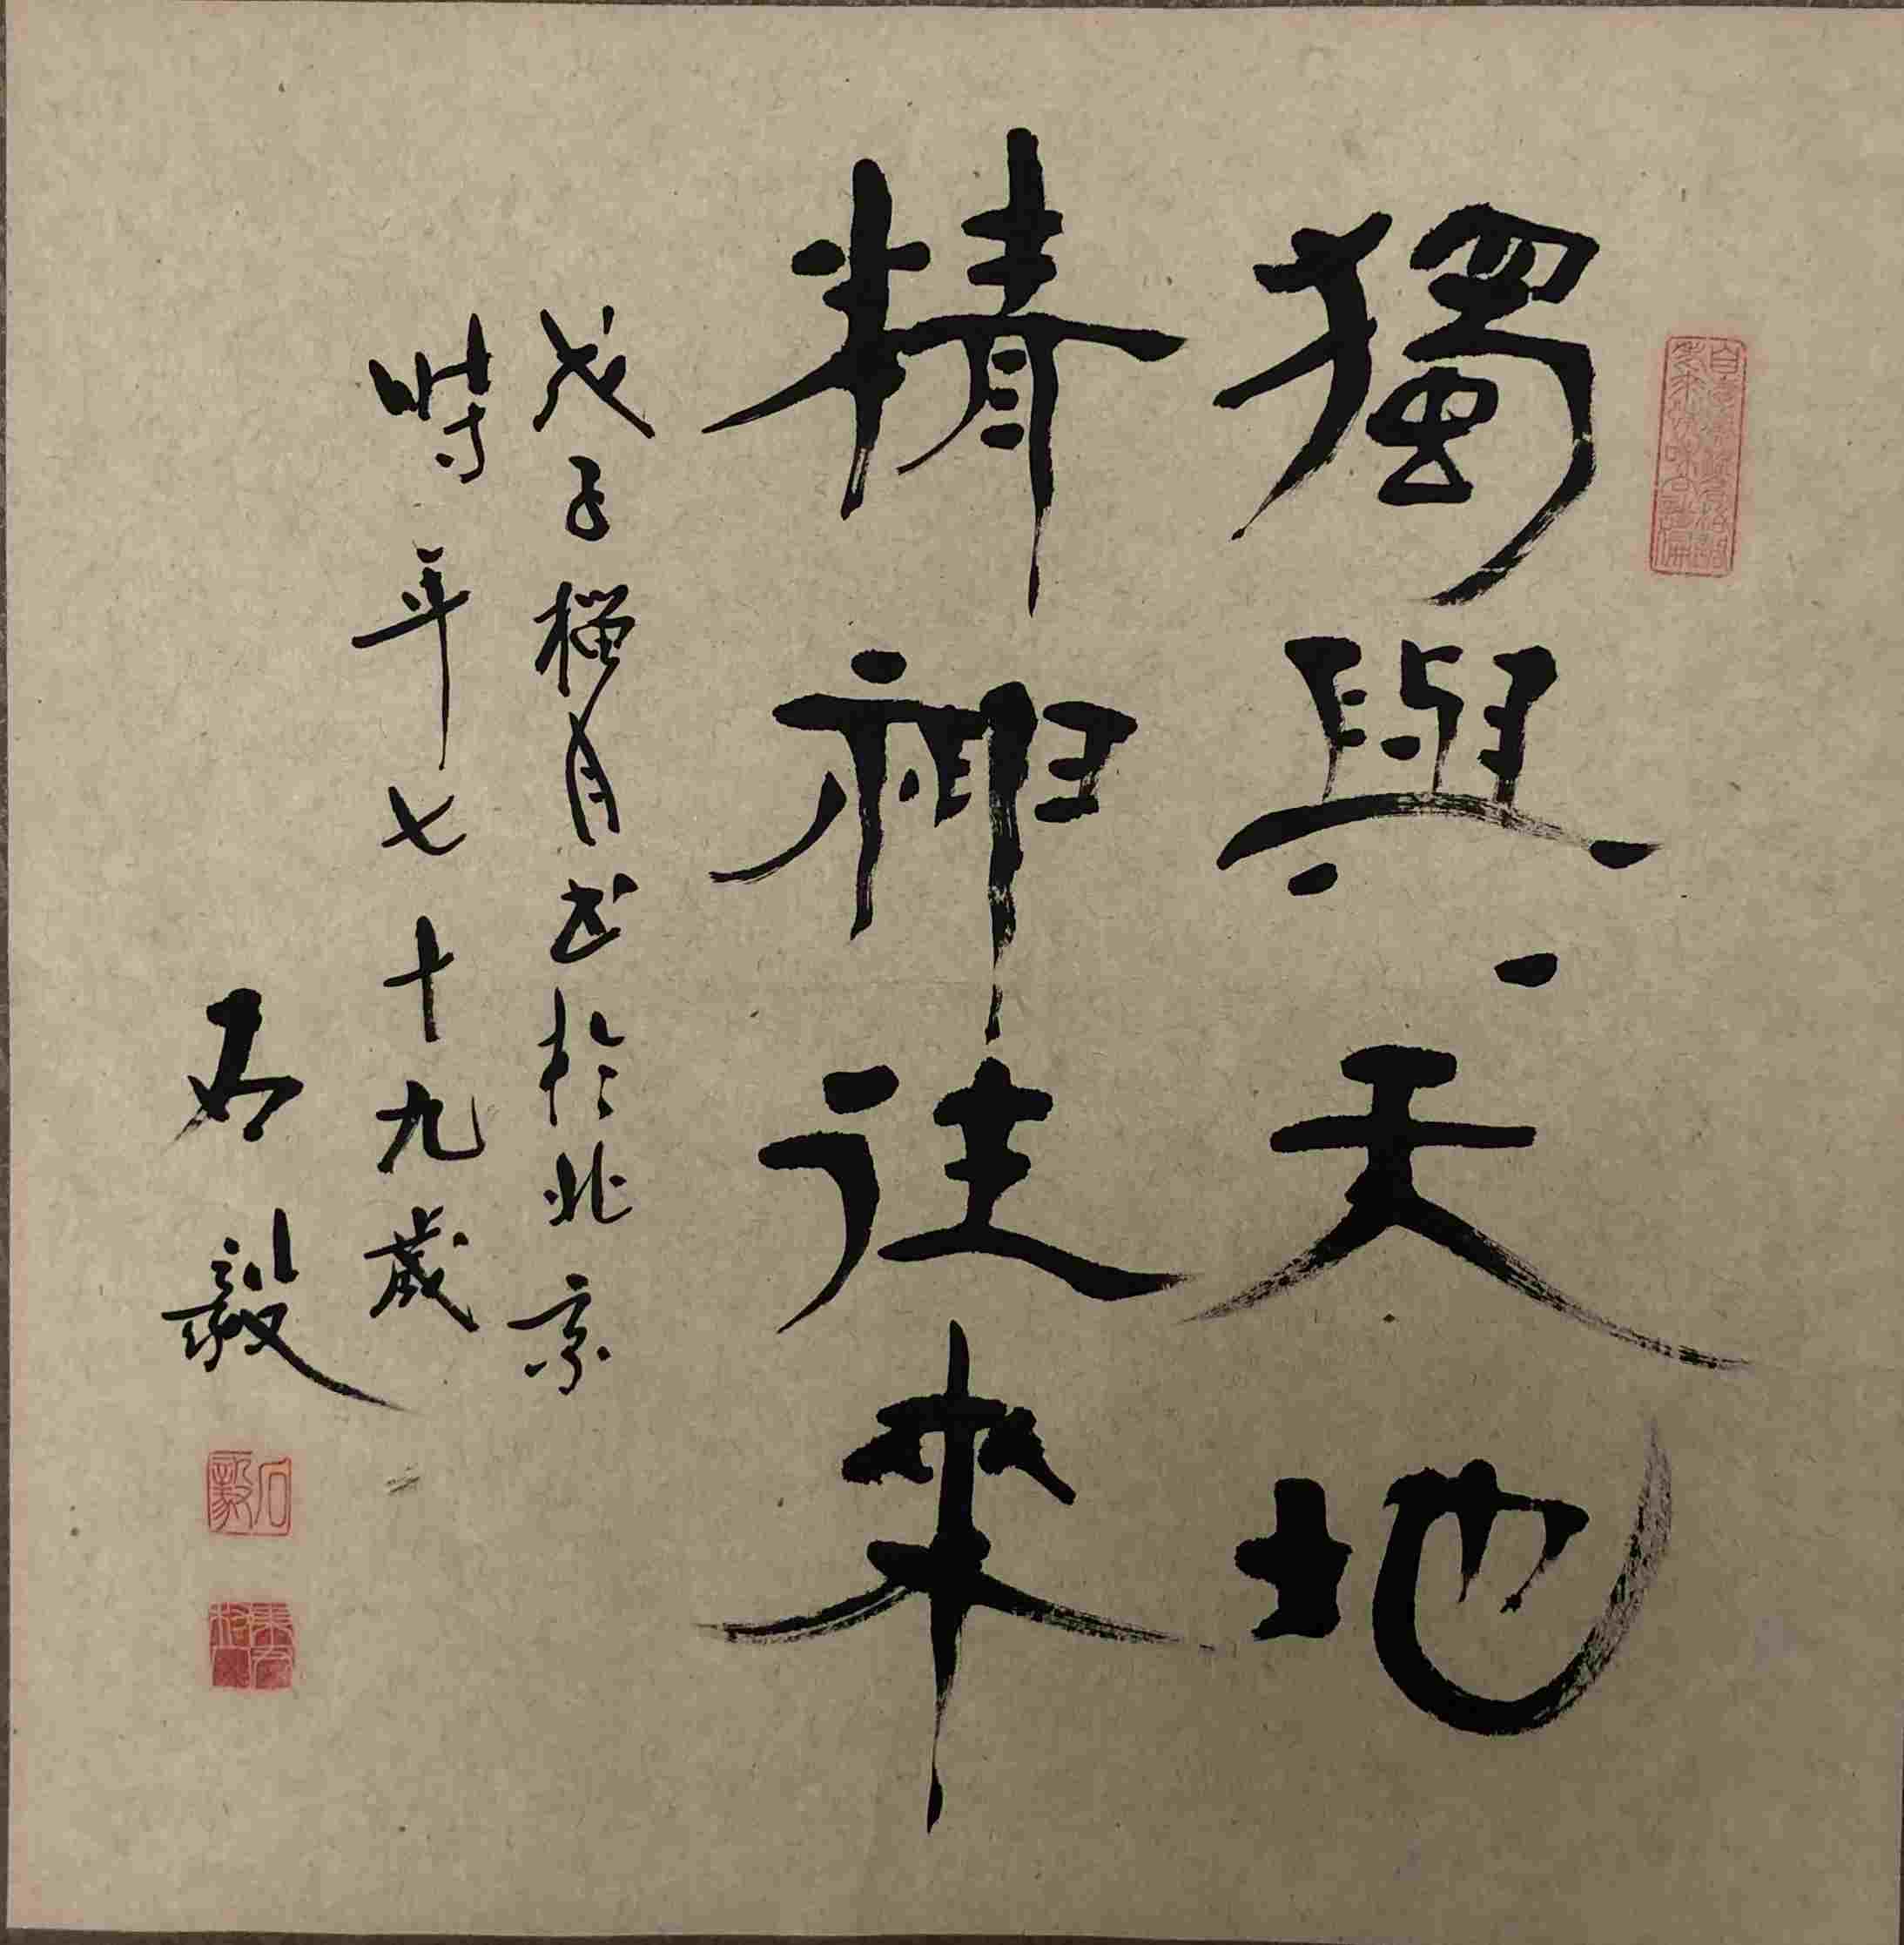 獨與天地
精神往來
戊子榴月书於北京
时年七十九歲
石毅
石毅